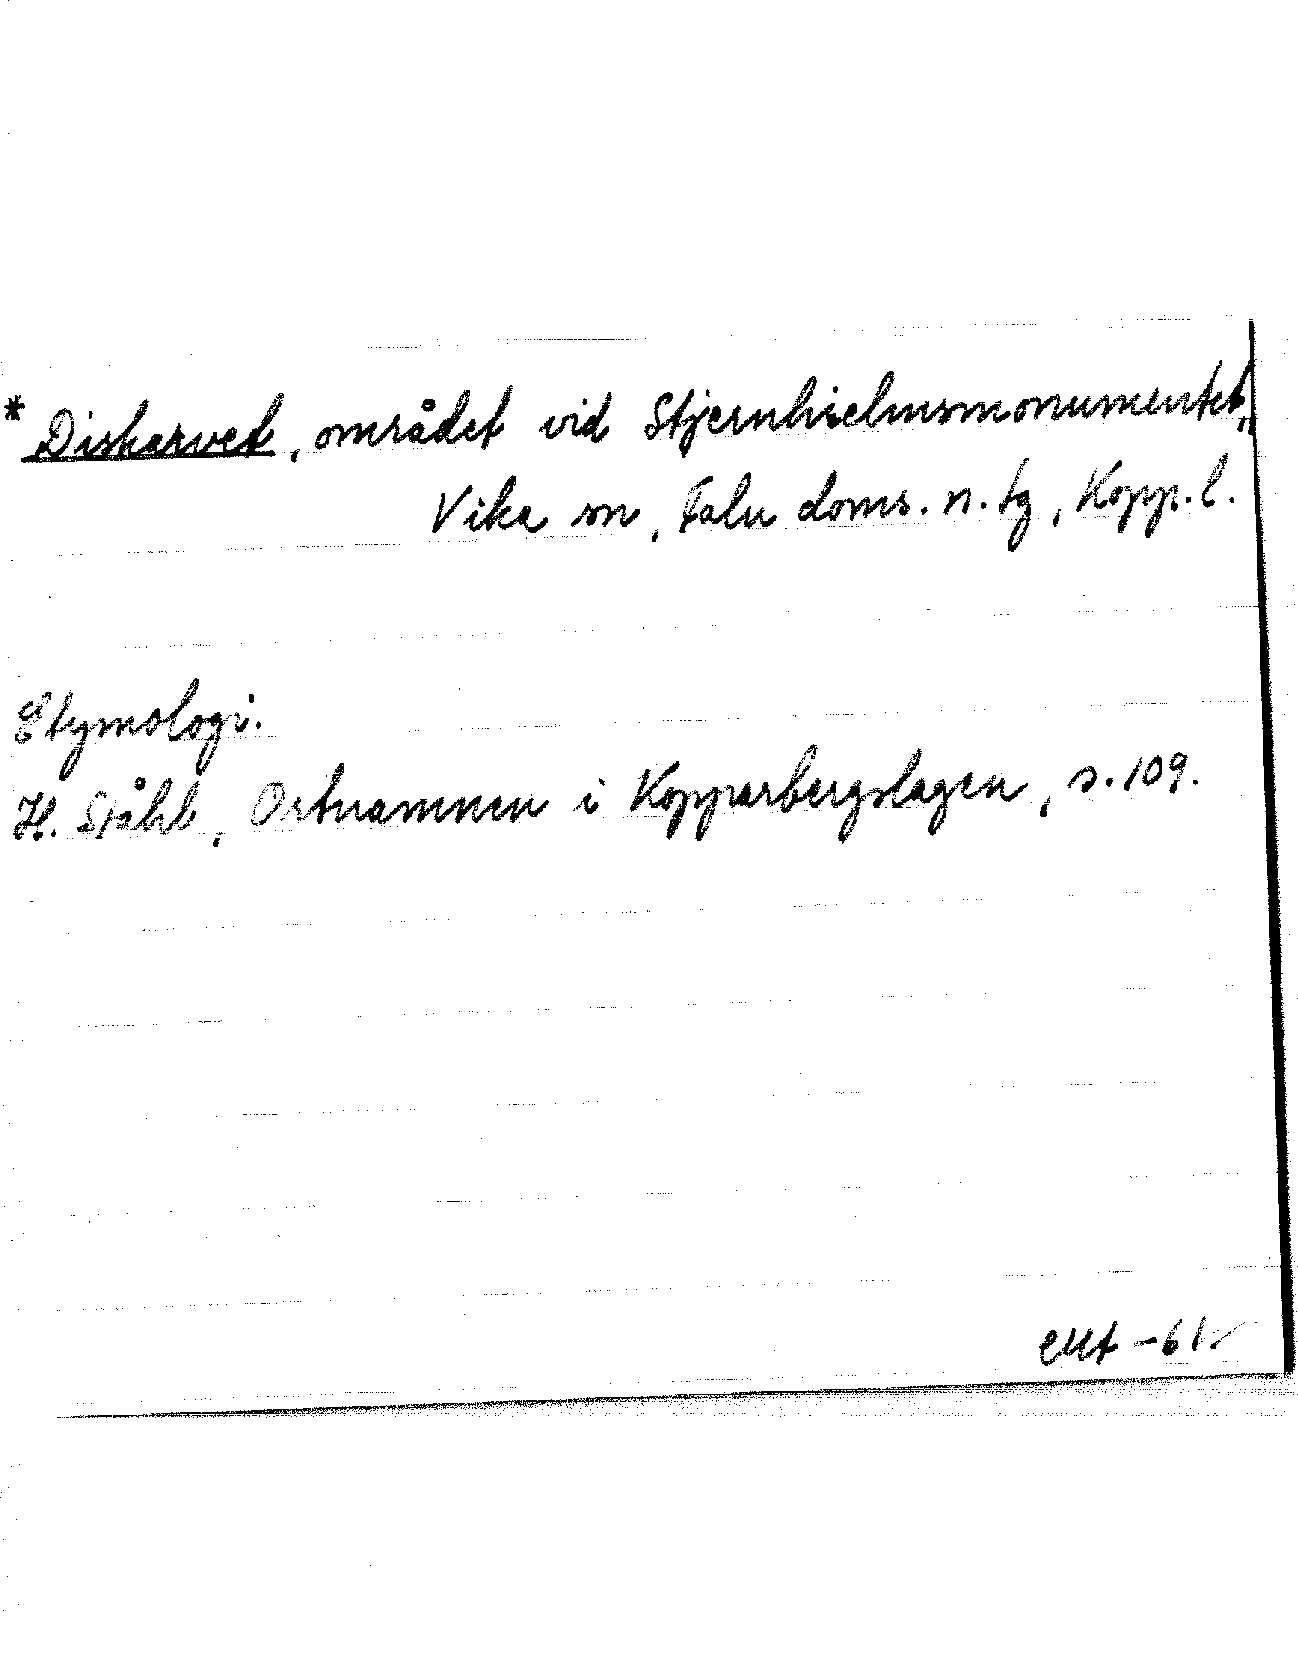 * Diskarvet, området vid Stjernhielmsmonumentet,
Vika sn, Falu doms. n. tg, Kopp. l.
Etymologi.
H. Ståhl, Ortnamnen i Kopparbergslagen, s. 109.
-61.